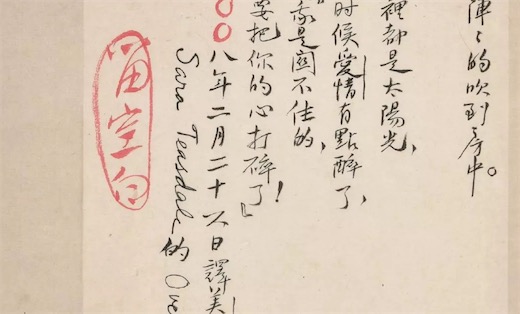 陣〻的吹到房中。
裡都是太陽光、
時候愛情有點醉了、
我是關不住的、
要把你的心打碎了!』
八年二月二十六日譯美
Sara Teasdale 的 Ove
留空白